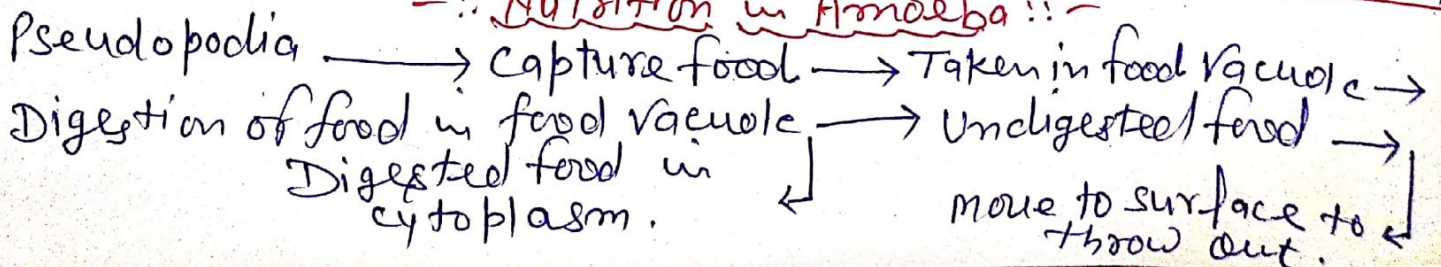 -:: Nutrition in Amoeba ::-
Pseudopodia → Capture food → Taken in food vacuole →
Digestion of food in food vacuole → Undigested food →
Digested food in
cytoplasm.
move to surface to
throw out.